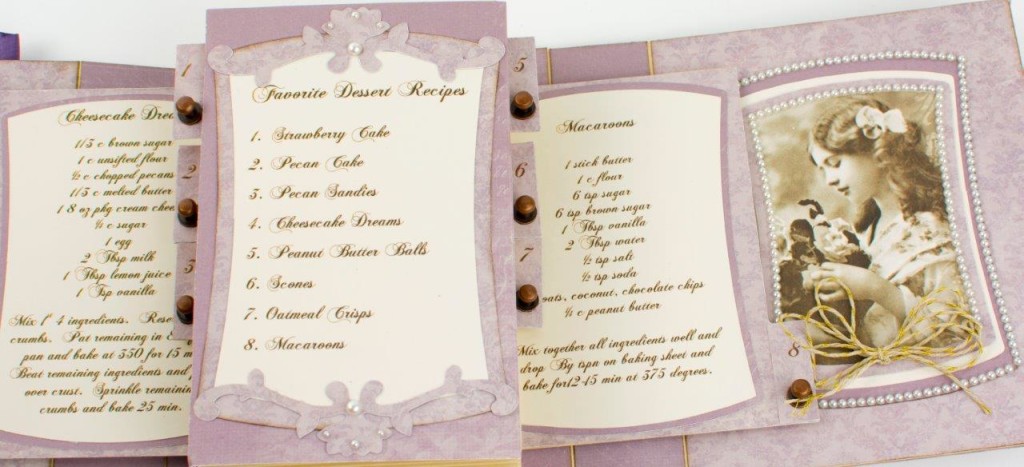 Cheesecake
1/3 c brown sugar
1 c unsifted flour
½ c chopped pecans
1/3 c melted butter
1 8 oz pkg cream
¼ c sugar
1 egg
2 Tbsp milk
1 Tbsp lemon juice
1 Tsp vanilla
Mix 1st 4 ingredients.
crumbs. Pat remaining in
pan and bake at 350 for 15
Beat remaining ingredients and
over crust. Sprinkle
crumbs and bake 25 min.
1
2
3
Favorite Dessert Recipes
1. Strawberry Cake
2. Pecan Cake
3. Pecan Sandies
4. Cheesecake Dreams
5. Peanut Butter Balls
6. Scones
7. Oatmeal Crisps
8. Macaroons
5
6
7
8
Macaroons
1 stick butter
1 c flour
6 tsp sugar
6 tsp brown sugar
1 Tbsp vanilla
2 Tbsp water
½ tsp salt
½ tsp soda
coconut, chocolate chips
¼ c peanut butter
Mix together all ingredients well and
drop By tspn on baking sheet and
bake for12-15 min at 375 degrees.